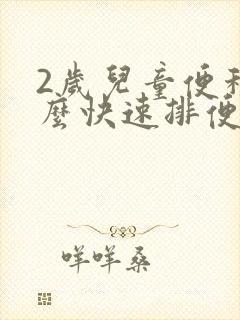 2歲兒童便秘
麼快速排便
咩咩桑